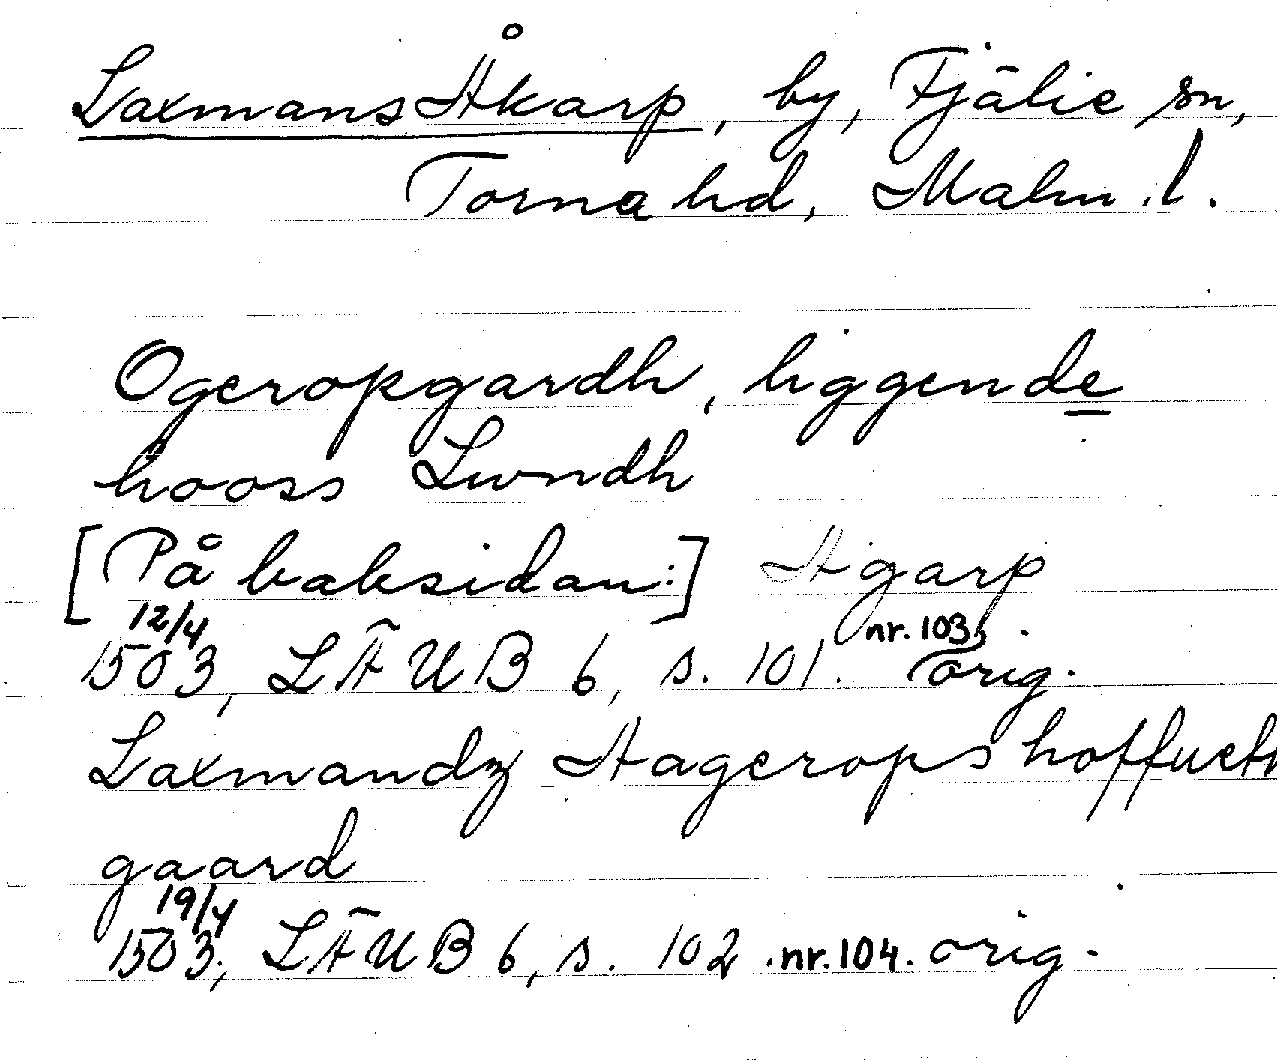 Laxmans Åkarp, by, Fjälie sn,
Torna hd, Malm. l.
Ogeropgardh, liggende
hooss Lwndh
[På baksidan:] Agarp
12/4
1503, LÄUB 6, s. 101. nr. 103, orig.
Laxmandz Aagerops hoffueth
gaard
19/4
1503, LÄUB 6, s. 102 . nr. 104. orig.